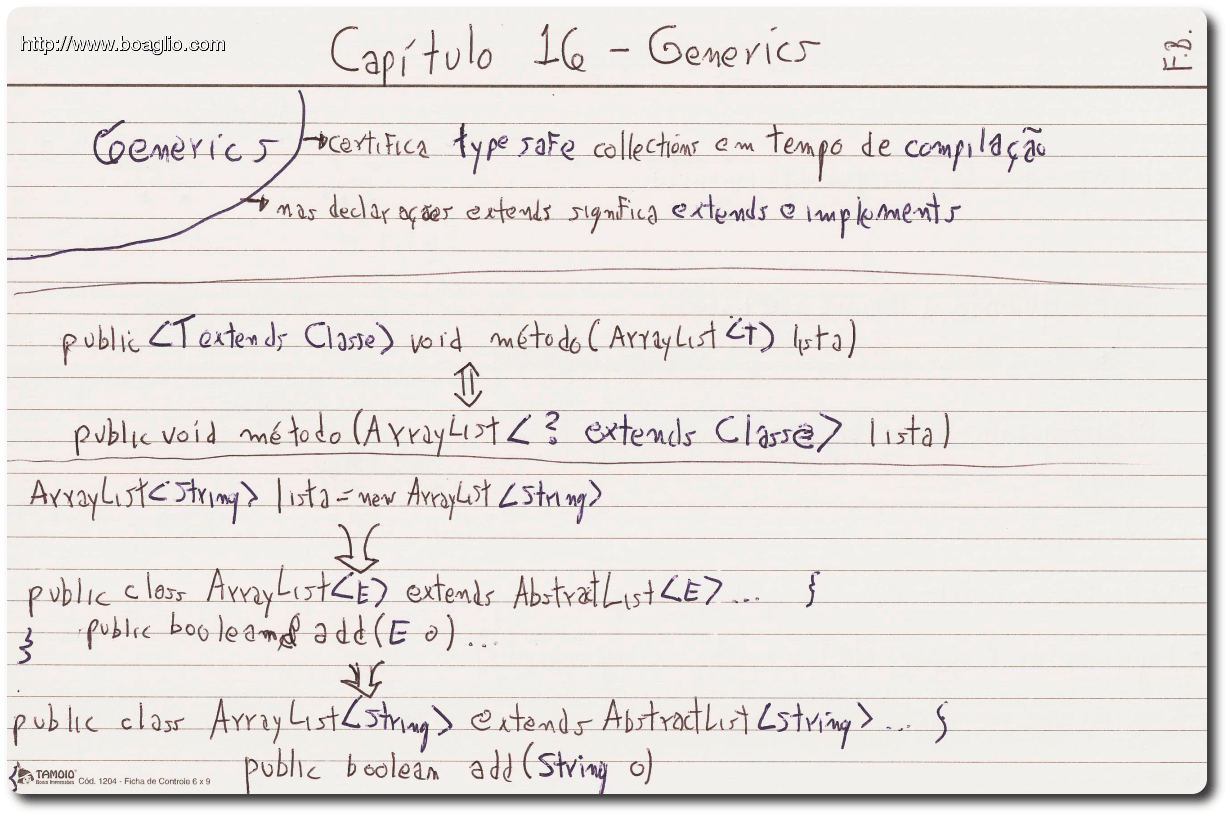 http://www.boaglio.com
Capítulo 16 - Generics
F.B.
Generics
certifica type safe collections em tempo de compilação
nas declarações extends signfica extends e implements
public <T extends Classe> void método(ArrayList <T> lista)
public void método(ArrayList < ? extends Classe> lista)
ArrayList<String> lista = new ArrayList <String>
public class ArrayList<E> extends AbstractList<E> ... {
public boolean add(E o) ...
}
public class ArrayList<String> extends AbstractList<String> ... {
public boolean add(String o)
}
TAMOIO
Cód. 1204 - Ficha de Controle 6 x 9